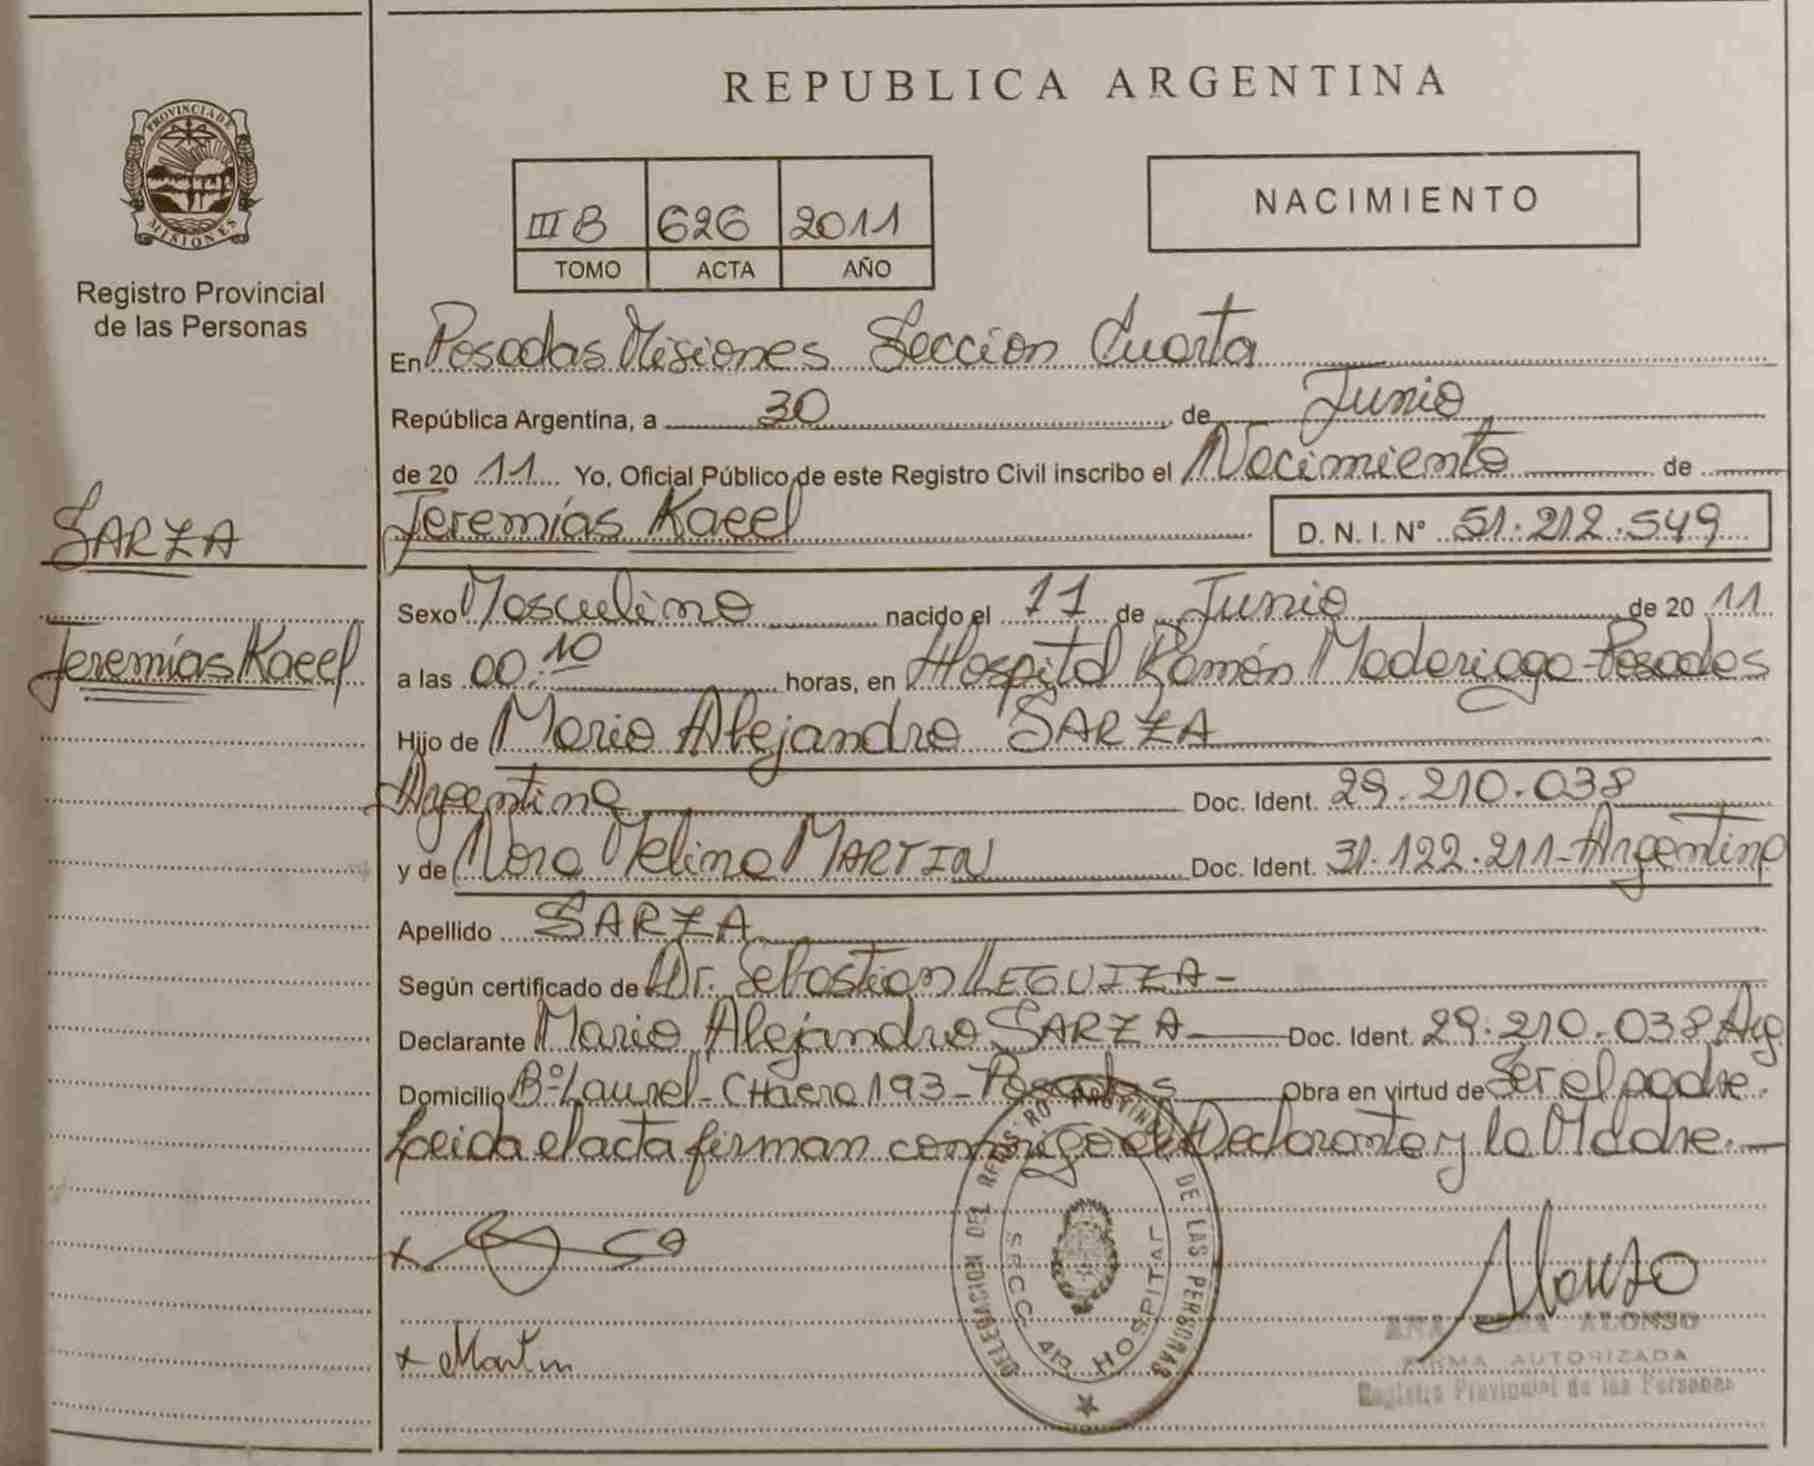 PROVINCIA DE
MISIONES
Registro Provincial
de las Personas
SARZA
Jeremías Kaeel
REPUBLICA ARGENTINA
III B 626 2011
TOMO ACTA AÑO
NACIMIENTO
En Posadas Misiones Seccion Cuarta
República Argentina, a 30 de Junio
de 20 11 Yo, Oficial Público de este Registro Civil inscribo el Nacimiento de
Jeremías Kaeel D. N. I. N° 51.212.549
Sexo Masculino nacido el 11 de Junio de 20 11
a las 00:10 horas, en Hospital Ramón Madariaga-Posadas
Hijo de Mario Alejandro SARZA
Argentino Doc. Ident. 29.210.038
y de Nora Melina MARTIN Doc. Ident. 31.122.211-Argentina
Apellido SARZA
Según certificado de Dr. Sebastian LEGUIZA-
Declarante Mario Alejandro SARZA Doc. Ident. 29.210.038 Arg
Domicilio B° Laurel-CHacra 193-Posadas Obra en virtud de Ser el padre.
Leida el acta firman conmigo el Declarante y la Madre.
DELEGACION DEL REGISTRO PROVINCIAL DE LAS PERSONAS
SECC. 4ta HOSPITAL
x
x Martin
Alonso
ANA ALONSO
FIRMA AUTORIZADA
Registro Provincial de las Personas